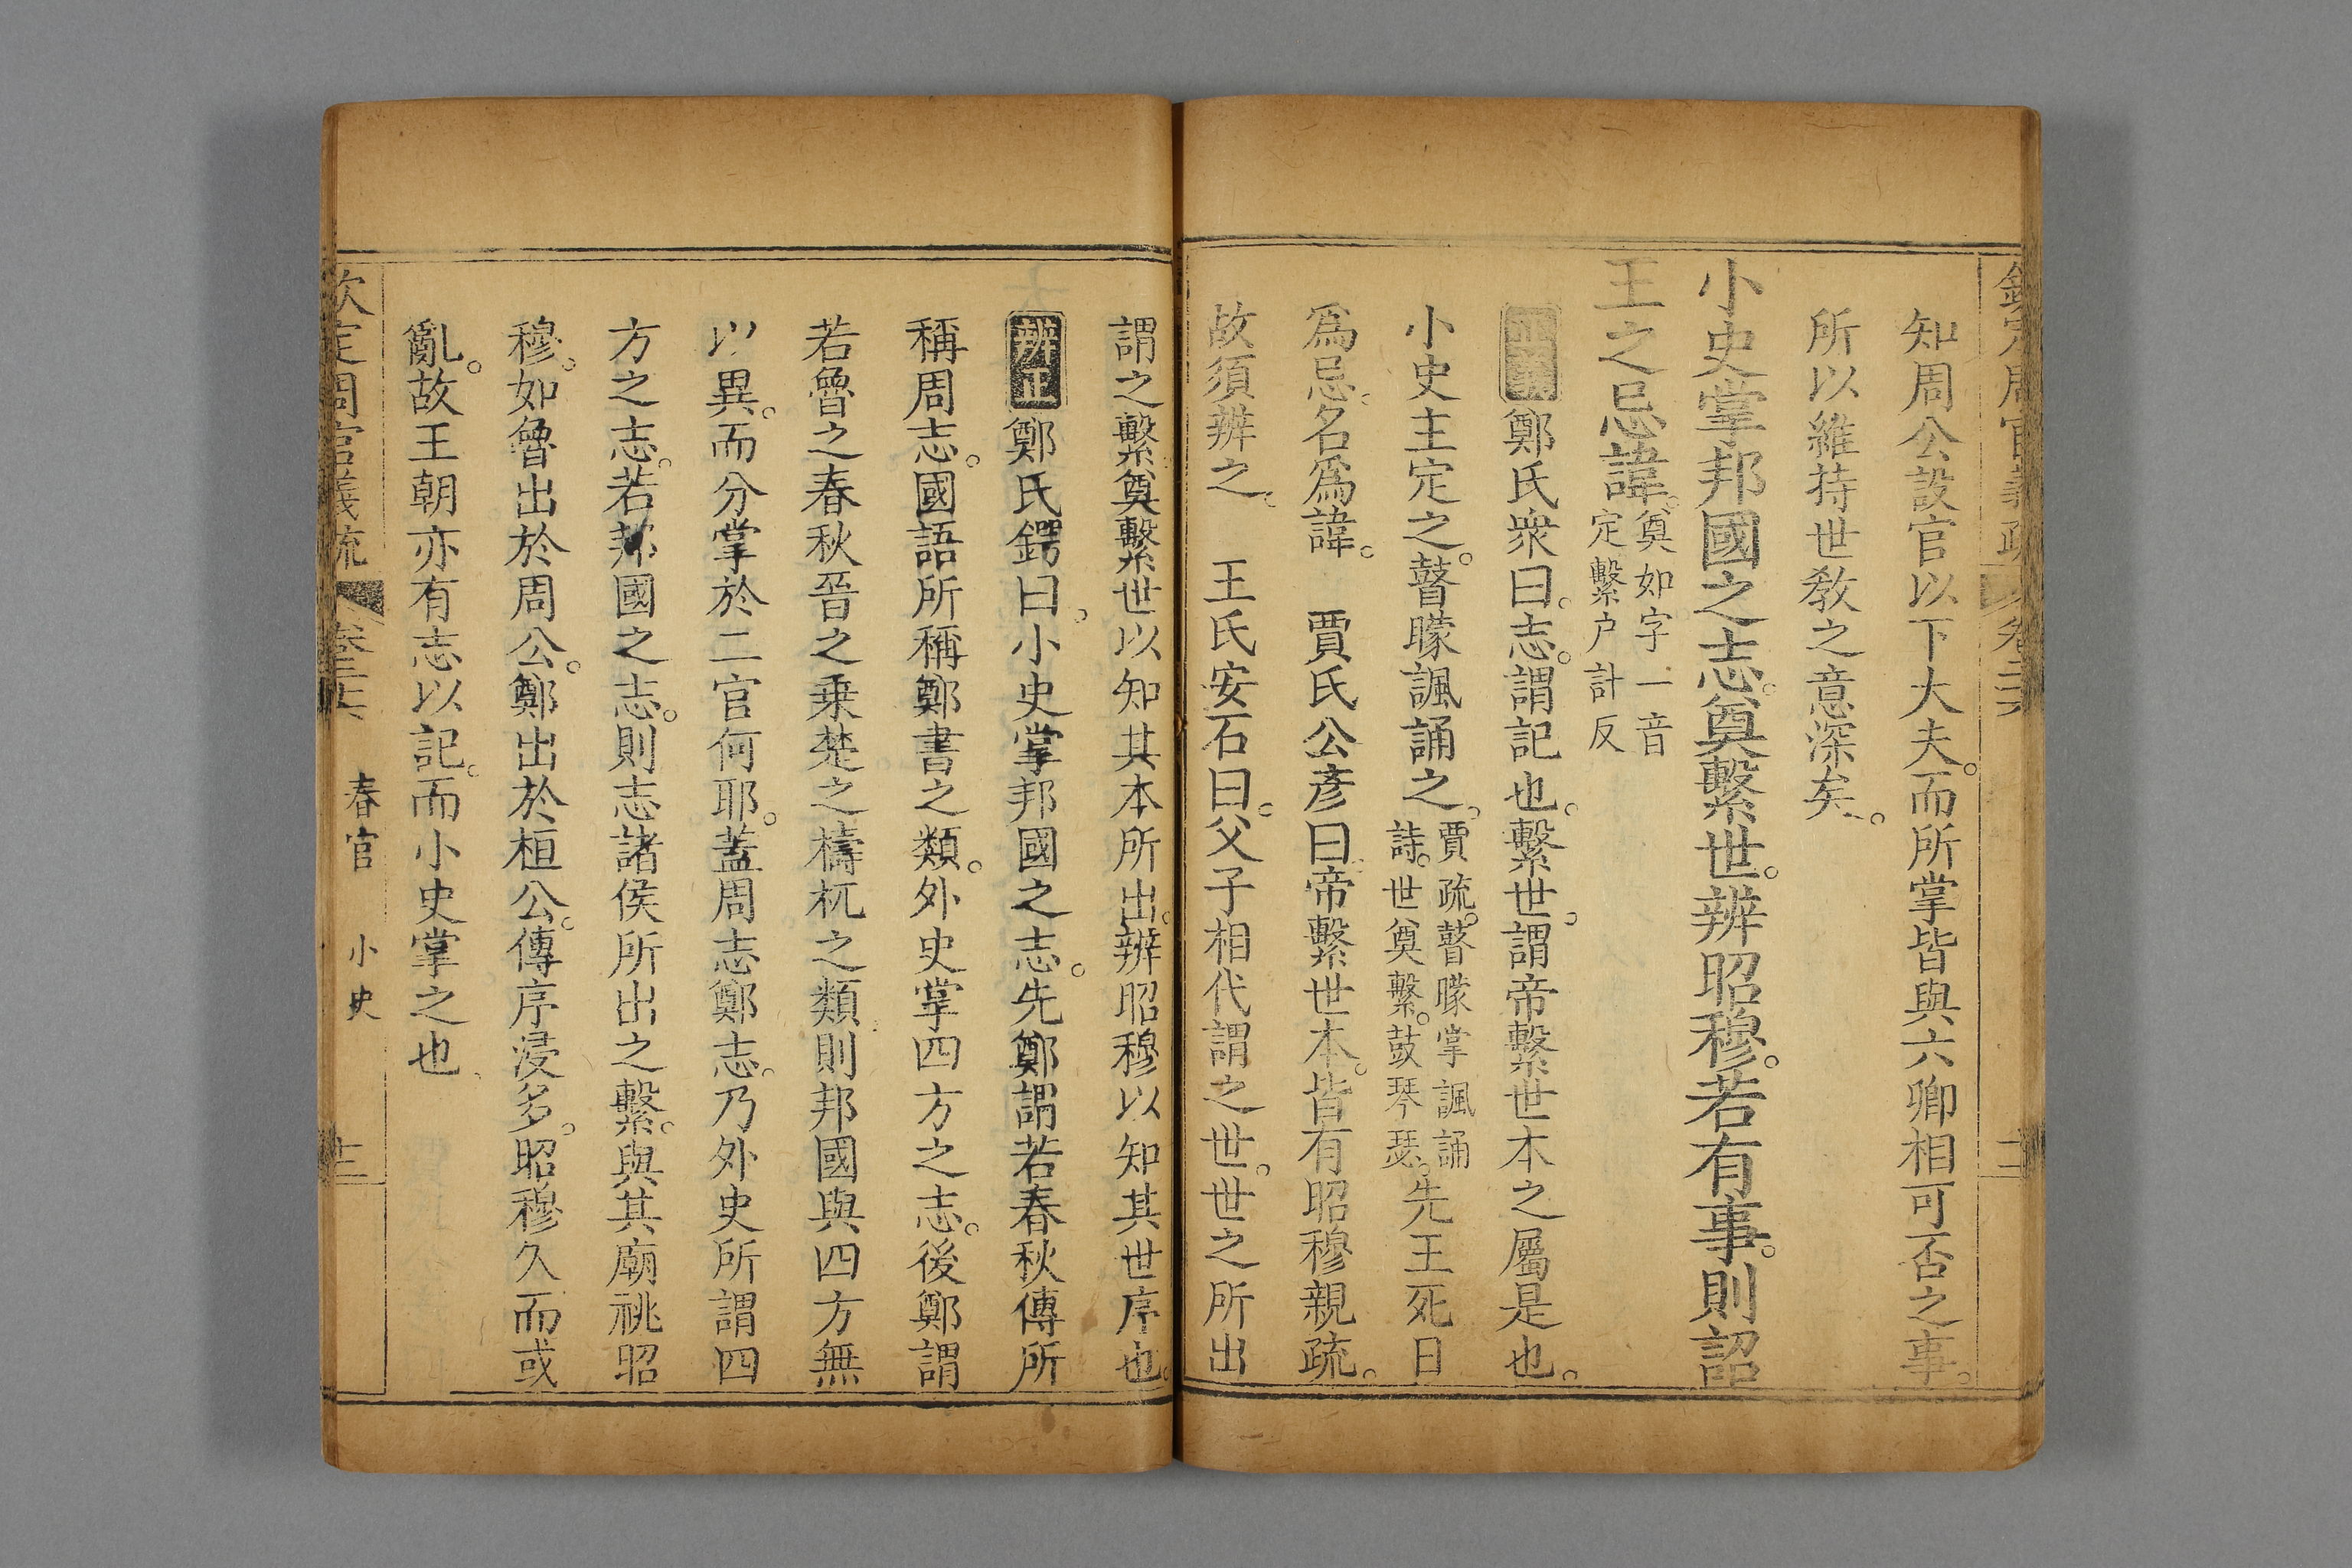 欽定周官義疏 卷二十六 十二
知周公設官以下大夫。而所掌皆與六卿相可否之事。
所以維持世教之意深矣。
小史掌邦國之志。奠繫世。辨昭穆。若有事。則詔
王之忌諱。奠如字一音
定繫户計反
正義鄭氏衆曰。志。謂記也。繫世。謂帝繫世本之屬是也。
小史主定之。瞽矇諷誦之。賈疏。瞽矇掌諷誦
詩。世奠繫。鼓琴瑟。先王死日
爲忌。名爲諱。 賈氏公彥曰。帝繫世本。皆有昭穆親疏。
故須辨之。 王氏安石曰。父子相代謂之世。世之所出
謂之繫。奠繫世以知其本所出。辨昭穆以知其世序也。
辨正鄭氏鍔曰。小史掌邦國之志。先鄭謂若春秋傳所
稱周志。國語所稱鄭書之類。外史掌四方之志。後鄭謂
若魯之春秋晉之乗楚之檮杌之類則邦國與四方無
以異。而分掌於二官何耶。蓋周志鄭志。乃外史所謂四
方之志。若邦國之志。則志諸侯所出之繫。與其廟祧昭
穆。如魯出於周公。鄭出於桓公。傳序浸多。昭穆久而或
亂。故王朝亦有志以記。而小史掌之也
欽定周官義疏 卷二十六 春官 小史 十二